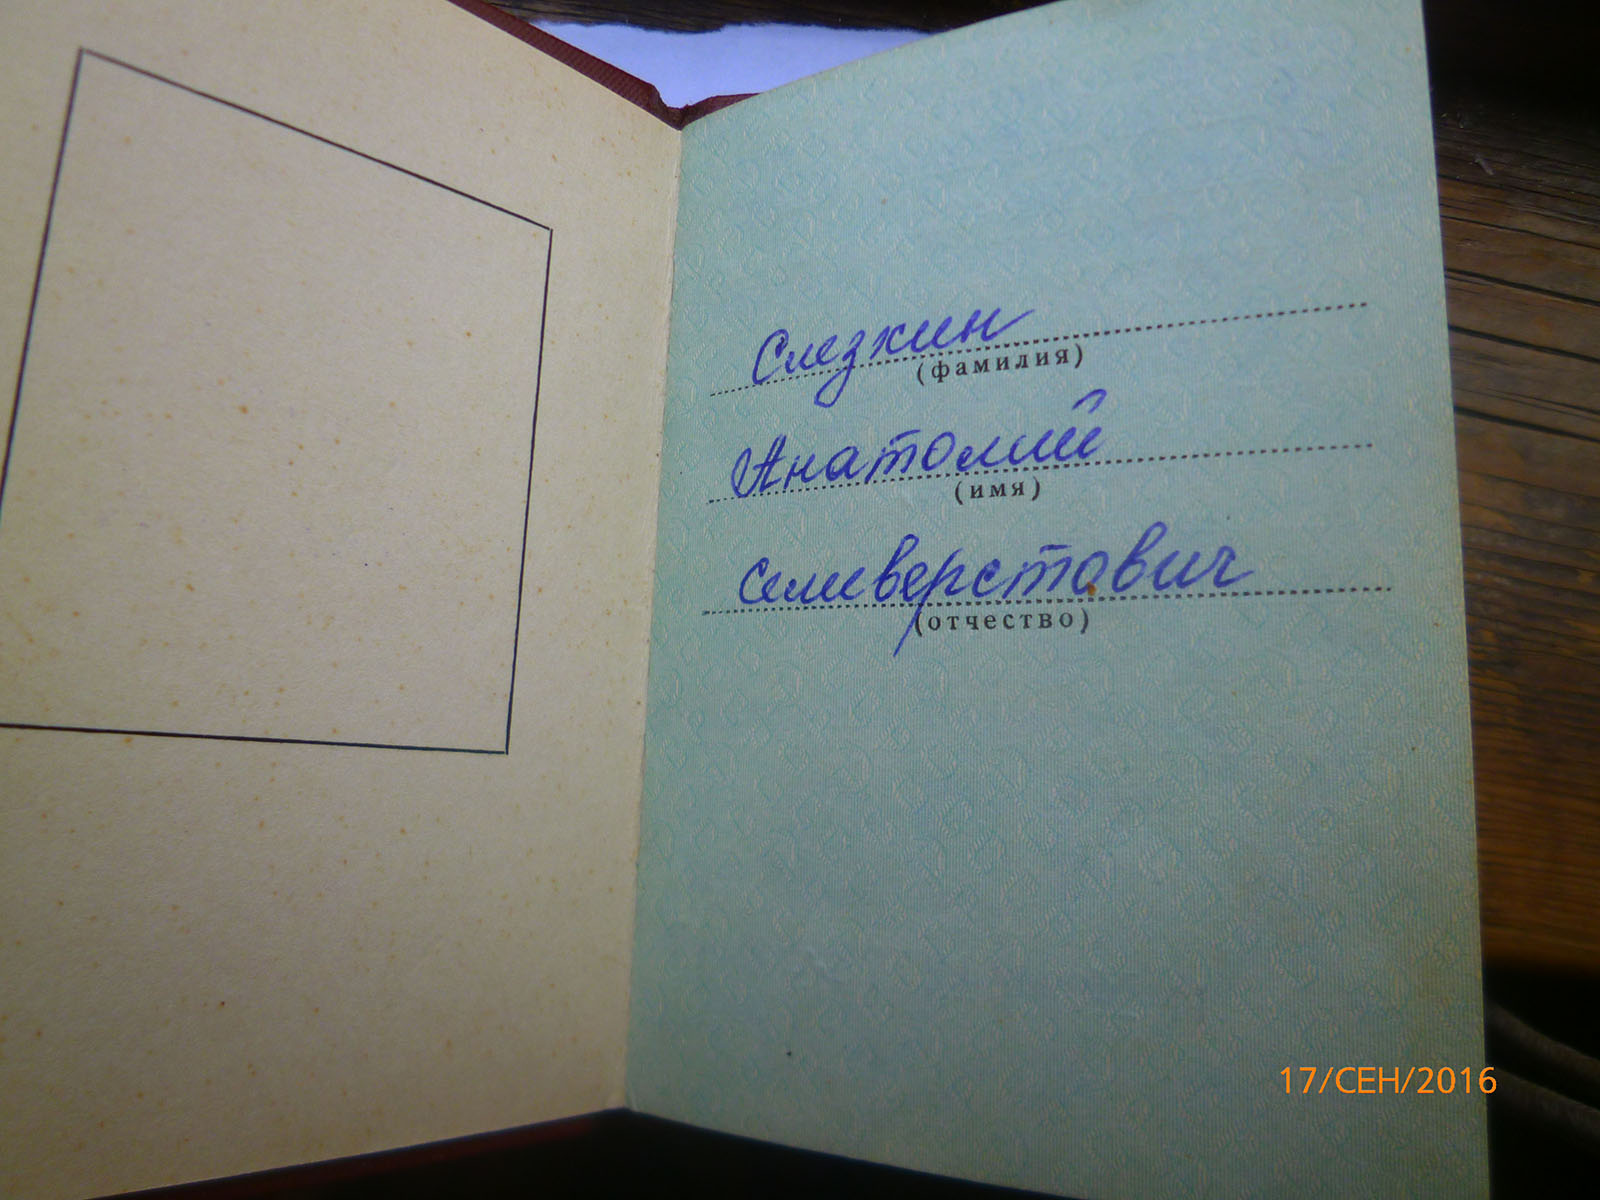 Слезкин
(фамилия)
Анатолий
(имя)
Селиверстович
(отчество)
17/СЕН/2016